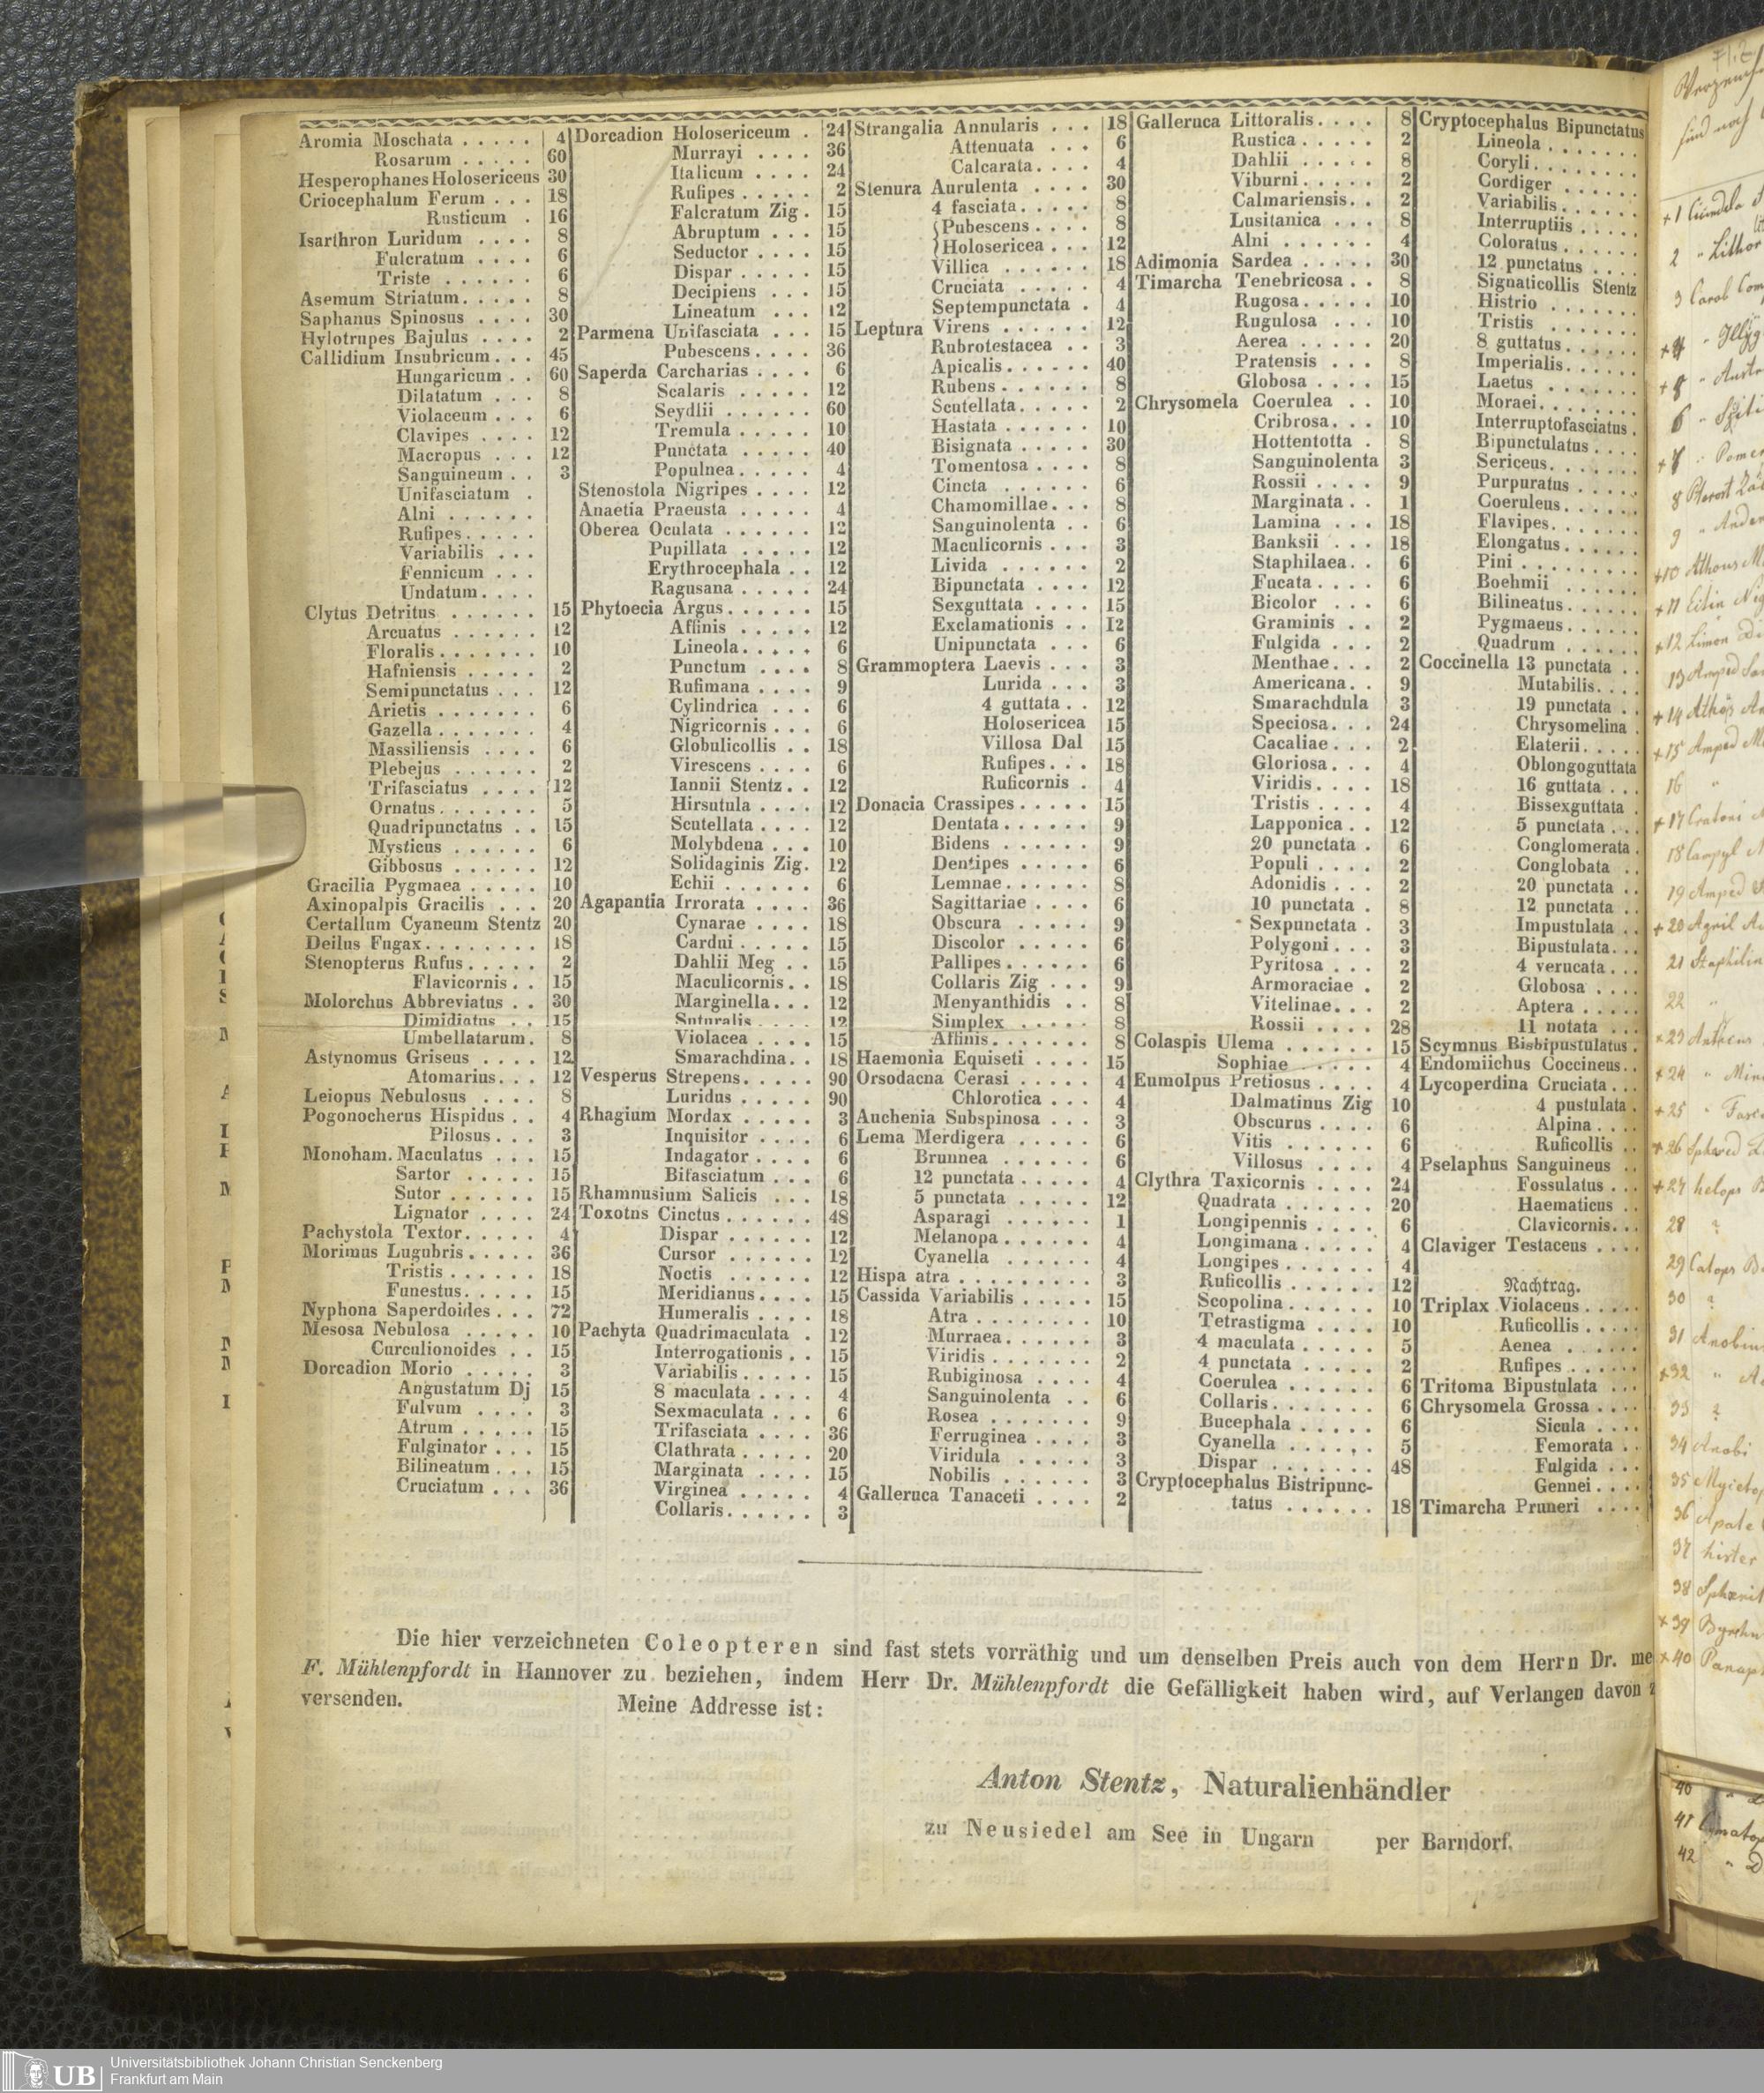 Aromia Moschata . . . . . 4
Rosarum . . . . . 60
Hesperophanes Holosericeus 30
Criocephalum Ferum . . . 18
Rusticum . 16
Isarthron Luridum . . . . 8
Fulcratum . . . . 6
Triste . . . . . . 6
Asemum Striatum . . . . . 8
Saphanus Spinosus . . . . 30
Hylotrupes Bajulus . . . . 2
Callidium Insubricum . . . 45
Hungaricum . . 60
Dilatatum . . . 8
Violaceum . . . 6
Clavipes . . . . 12
Macropus . . . 12
Sanguineum . . 3
Unifasciatum .
Alni . . . . . .
Rufipes . . . . .
Variabilis . . .
Fennicum . . .
Undatum . . . .
Clytus Detritus . . . . . . 15
Arcuatus . . . . . . 12
Floralis . . . . . . . 10
Hafniensis . . . . . 2
Semipunctatus . . . 12
Arietis . . . . . . . 6
Gazella . . . . . . . 4
Massiliensis . . . . 6
Plebejus . . . . . . 2
Trifasciatus . . . . 12
Ornatus . . . . . . . 5
Quadripunctatus . . 15
Mysticus . . . . . . 6
Gibbosus . . . . . . 12
Gracilia Pygmaea . . . . . 10
Axinopalpis Gracilis . . . 20
Certallum Cyaneum Stentz 20
Deilus Fugax . . . . . . . . 18
Stenopterus Rufus . . . . . 2
Flavicornis . . 15
Molorchus Abbreviatus . . 30
Dimidiatus . . 15
Umbellatarum . 8
Astynomus Griseus . . . . 12
Atomarius . . . 12
Leiopus Nebulosus . . . . 8
Pogonocherus Hispidus . . 4
Pilosus . . . 3
Monoham. Maculatus . . . 15
Sartor . . . . . 15
Sutor . . . . . . 15
Lignator . . . . 24
Pachystola Textor . . . . . 4
Morimus Lugubris . . . . . 36
Tristis . . . . . . 18
Funestus . . . . . 15
Nyphona Saperdoides . . . 72
Mesosa Nebulosa . . . . . 10
Curculionoides . . 15
Dorcadion Morio . . . . . 3
Angustatum Dj 15
Fulvum . . . . 3
Atrum . . . . . 15
Fulginator . . . 15
Bilineatum . . . 15
Cruciatum . . . 36
Dorcadion Holosericeum . 24
Murrayi . . . . 36
Italicum . . . . 24
Rufipes . . . . . 2
Falcratum Zig . 15
Abruptum . . . 15
Seductor . . . . 15
Dispar . . . . . 15
Decipiens . . . 15
Lineatum . . . 12
Parmena Unifasciata . . . 15
Pubescens . . . . 36
Saperda Carcharias . . . . 6
Scalaris . . . . . 12
Seydlii . . . . . . 60
Tremula . . . . . 10
Punctata . . . . . 40
Populnea . . . . . 4
Stenostola Nigripes . . . . 12
Anaetia Praeusta . . . . . 4
Oberea Oculata . . . . . . 12
Pupillata . . . . . 12
Erythrocephala . . 12
Ragusana . . . . . 24
Phytoecia Argus . . . . . . 15
Affinis . . . . . 12
Lineola . . . . . 6
Punctum . . . . 8
Rufimana . . . . 9
Cylindrica . . . 6
Nigricornis . . . 6
Globulicollis . . 18
Virescens . . . . 6
Iannii Stentz . . 12
Hirsutula . . . . 12
Scutellata . . . . 12
Molybdena . . . 10
Solidaginis Zig. 12
Echii . . . . . . 6
Agapantia Irrorata . . . . 36
Cynarae . . . . 18
Cardui . . . . . 15
Dahlii Meg . . 15
Maculicornis . . 18
Marginella . . . 12
Suturalis . . . . 12
Violacea . . . . 15
Smarachdina . . 18
Vesperus Strepens . . . . . 90
Luridus . . . . . 90
Rhagium Mordax . . . . . 3
Inquisitor . . . . 6
Indagator . . . . 6
Bifasciatum . . . 6
Rhamnusium Salicis . . . 18
Toxotns Cinctus . . . . . . 48
Dispar . . . . . . 12
Cursor . . . . . . 12
Noctis . . . . . . 12
Meridianus . . . . . 15
Humeralis . . . . . 18
Pachyta Quadrimaculata . 12
Interrogationis . . 15
Variabilis . . . . . 15
8 maculata . . . . 4
Sexmaculata . . . 6
Trifasciata . . . . 36
Clathrata . . . . . 20
Marginata . . . . 15
Virginea . . . . . 4
Collaris . . . . . . 3
Strangalia Annularis . . . 18
Attenuata . . . 6
Calcarata . . . . 4
Stenura Aurulenta . . . . 30
4 fasciata . . . . . 8
{Pubescens . . . . 8
{Holosericea . . . 12
Villica . . . . . . 18
Cruciata . . . . . 4
Septempunctata . 4
Leptura Virens . . . . . . 12
Rubrotestacea . . 3
Apicalis . . . . . . 40
Rubens . . . . . . 8
Scutellata . . . . . 2
Hastata . . . . . . 10
Bisignata . . . . . 30
Tomentosa . . . . 8
Cincta . . . . . . 6
Chamomillae . . . 8
Sanguinolenta . . 6
Maculicornis . . . 3
Livida . . . . . . 2
Bipunctata . . . . 12
Sexguttata . . . . 15
Exclamationis . . 12
Unipunctata . . . 6
Grammoptera Laevis . . . 3
Lurida . . . 3
4 guttata . . 12
Holosericea 15
Villosa Dal 15
Rufipes . . . 18
Ruficornis . 4
Donacia Crassipes . . . . . 15
Dentata . . . . . . 9
Bidens . . . . . . 9
Dentipes . . . . . 6
Lemnae . . . . . . 8
Sagittariae . . . . 6
Obscura . . . . . 9
Discolor . . . . . 6
Pallipes . . . . . . 6
Collaris Zig . . . 9
Menyanthidis . . 8
Simplex . . . . . 8
Affinis . . . . . . 8
Haemonia Equiseti . . . . 15
Orsodacna Cerasi . . . . . 4
Chlorotica . . . 4
Auchenia Subspinosa . . . 3
Lema Merdigera . . . . . 6
Brunnea . . . . . . 6
12 punctata . . . . . 4
5 punctata . . . . . 12
Asparagi . . . . . . 1
Melanopa . . . . . . 4
Cyanella . . . . . 4
Hispa atra . . . . . . . . . 3
Cassida Variabilis . . . . . 15
Atra . . . . . . . . 10
Murraea . . . . . . 3
Viridis . . . . . . . 2
Rubiginosa . . . . 4
Sanguinolenta . . 6
Rosea . . . . . . . 9
Ferruginea . . . . 3
Viridula . . . . . 3
Nobilis . . . . . . 3
Galleruca Tanaceti . . . . 2
Galleruca Littoralis . . . . 8
Rustica . . . . . 2
Dahlii . . . . . 8
Viburni . . . . . 2
Calmariensis . . 2
Lusitanica . . . 8
Alni . . . . . . 4
Adimonia Sardea . . . . . 30
Timarcha Tenebricosa . . 8
Rugosa . . . . . 10
Rugulosa . . . 10
Aerea . . . . . 20
Pratensis . . . 8
Globosa . . . . 15
Chrysomela Coerulea . . 10
Cribrosa . . . 10
Hottentotta . 8
Sanguinolenta 3
Rossii . . . . 9
Marginata . . 1
Lamina . . . 18
Banksii . . . 18
Staphilaea . . 6
Fucata . . . . 6
Bicolor . . . 6
Graminis . . 2
Fulgida . . . 2
Menthae . . . 2
Americana . . 9
Smarachdula 3
Speciosa . . . 24
Cacaliae . . . 2
Gloriosa . . . 4
Viridis . . . . 18
Tristis . . . . 4
Lapponica . . 12
20 punctata . 6
Populi . . . . 2
Adonidis . . . 2
10 punctata . 8
Sexpunctata . 3
Polygoni . . . 3
Pyritosa . . . 2
Armoraciae . 2
Vitelinae . . . 2
Rossii . . . . 28
Colaspis Ulema . . . . . . 15
Sophiae . . . . . 4
Eumolpus Pretiosus . . . . 4
Dalmatinus Zig 10
Obscurus . . . . 6
Vitis . . . . . . 6
Villosus . . . . 4
Clythra Taxicornis . . . . 24
Quadrata . . . . . . . 20
Longipennis . . . . 6
Longimana . . . . . 4
Longipes . . . . . 4
Ruficollis . . . . . . 12
Scopolina . . . . . . 10
Tetrastigma . . . . 10
4 maculata . . . . . 5
4 punctata . . . . . 2
Coerulea . . . . . . 6
Collaris . . . . . . . 6
Bucephala . . . . . 6
Cyanella . . . . . . 5
Dispar . . . . . . . 48
Cryptocephalus Bistripunc-
tatus . . . . . . 18
Cryptocephalus Bipunctatus
Lineola . . . . . . .
Coryli . . . . . . . .
Cordiger . . . . . .
Variabilis . . . . . .
Interruptiis . . . . .
Coloratus . . . . . .
12 punctatus . . . .
Signaticollis Stentz
Histrio . . . . . . .
Tristis . . . . . . .
8 guttatus . . . . . .
Imperialis . . . . . .
Laetus . . . . . . .
Moraei . . . . . . . .
Interruptofasciatus .
Bipunctulatus . . . .
Sericeus . . . . . . .
Purpuratus . . . . .
Coeruleus . . . . . .
Flavipes . . . . . . .
Elongatus . . . . . .
Pini . . . . . . . . .
Boehmii . . . . . .
Bilineatus . . . . . .
Pygmaeus . . . . . .
Quadrum . . . . . .
Coccinella 13 punctata . .
Mutabilis . . . .
19 punctata . .
Chrysomelina .
Elaterii . . . . .
Oblongoguttata
16 guttata . . .
Bissexguttata .
5 punctata . . .
Conglomerata .
Conglobata . .
20 punctata . .
12 punctata . .
Impustulata . .
Bipustulata . . .
4 verucata . . .
Globosa . . . .
Aptera . . . . .
11 notata . . .
Scymnus Bisbipustulatus .
Endomiichus Coccineus . .
Lycoperdina Cruciata . . .
4 pustulata .
Alpina . . . .
Ruficollis . .
Pselaphus Sanguineus . .
Fossulatus . . .
Haematicus . .
Clavicornis . . .
Claviger Testaceus . . . .
Nachtrag.
Triplax Violaceus . . . . .
Ruficollis . . . . .
Aenea . . . . . .
Rufipes . . . . . .
Tritoma Bipustulata . . .
Chrysomela Grossa . . . .
Sicula . . . .
Femorata . .
Fulgida . . .
Gennei . . . .
Timarcha Pruneri . . . .
Die hier verzeichneten Coleopteren sind fast stets vorräthig und um denselben Preis auch von dem Herrn Dr. me
F. Mühlenpfordt in Hannover zu beziehen, indem Herr Dr. Mühlenpfordt die Gefälligkeit haben wird, auf Verlangen davon
versenden. Meine Addresse ist:
Anton Stentz, Naturalienhändler
zu Neusiedel am See in Ungarn per Barndorf.
UB
Universitätsbibliothek Johann Christian Senckenberg
Frankfurt am Main